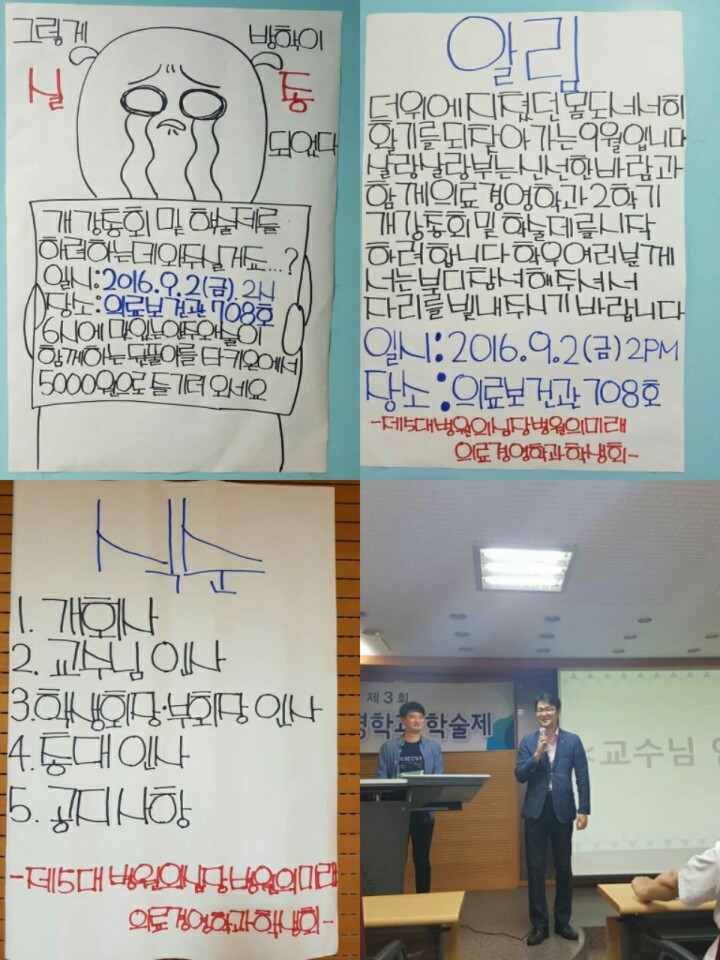 그렇게 방학이
실 종
되었다
개강총회 및 학술제를
하려하는데 와주실거죠...?
일시:2016.9.2(금).2시
장소:의료보건관 708호
6시에 맛있는안주와술이
함께하는 뒤풀이를 타키온에서
5000원으로 즐기러 오세요
알림
더위에 지쳤던 몸도 서서히
활기를 되찾아가는 9월입니다
살랑살랑부는 신선한 바람과
함께 의료경영학과 2학기
개강총회 및 학술제를 시작
하려 합니다 학우여러분께
서는 부디 참석해주셔서
자리를 빛내주시기 바랍니다
일시:2016.9.2(금) 2PM
장소:의료보건관 708호
-제5대 병원의심장 병원의미래
의료경영학과 학생회-
식순
1. 개회사
2. 교수님 인사
3.학생회장·부회장 인사
4.총대 인사
5. 공지사항
-제5대 병원의심장 병원의미래
의료경영학과 학생회-
제3회
영학과 학술제
<교수님 인